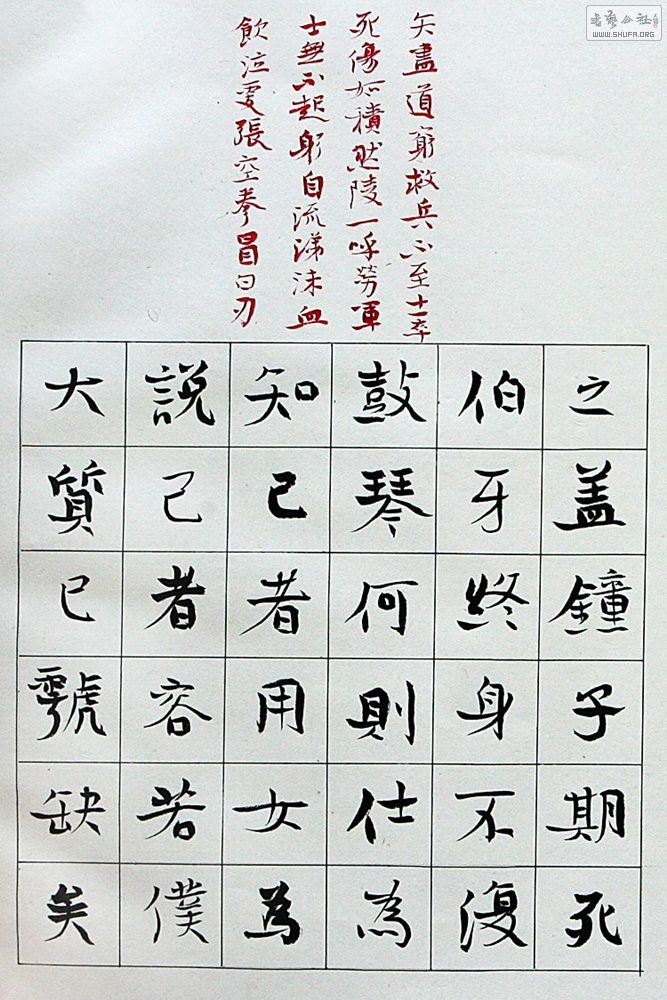 矢盡道窮救兵不至士卒
死傷如積然陵一呼勞軍
士無不起躬自流涕沬血
飲泣更張空拳冒白刃
之盖鐘子期死
伯牙終身不復
鼓琴何則仕為
知己者用女為
說己者容若僕
大質已虧缺矣
書藝公社
WWW.SHUFA.ORG